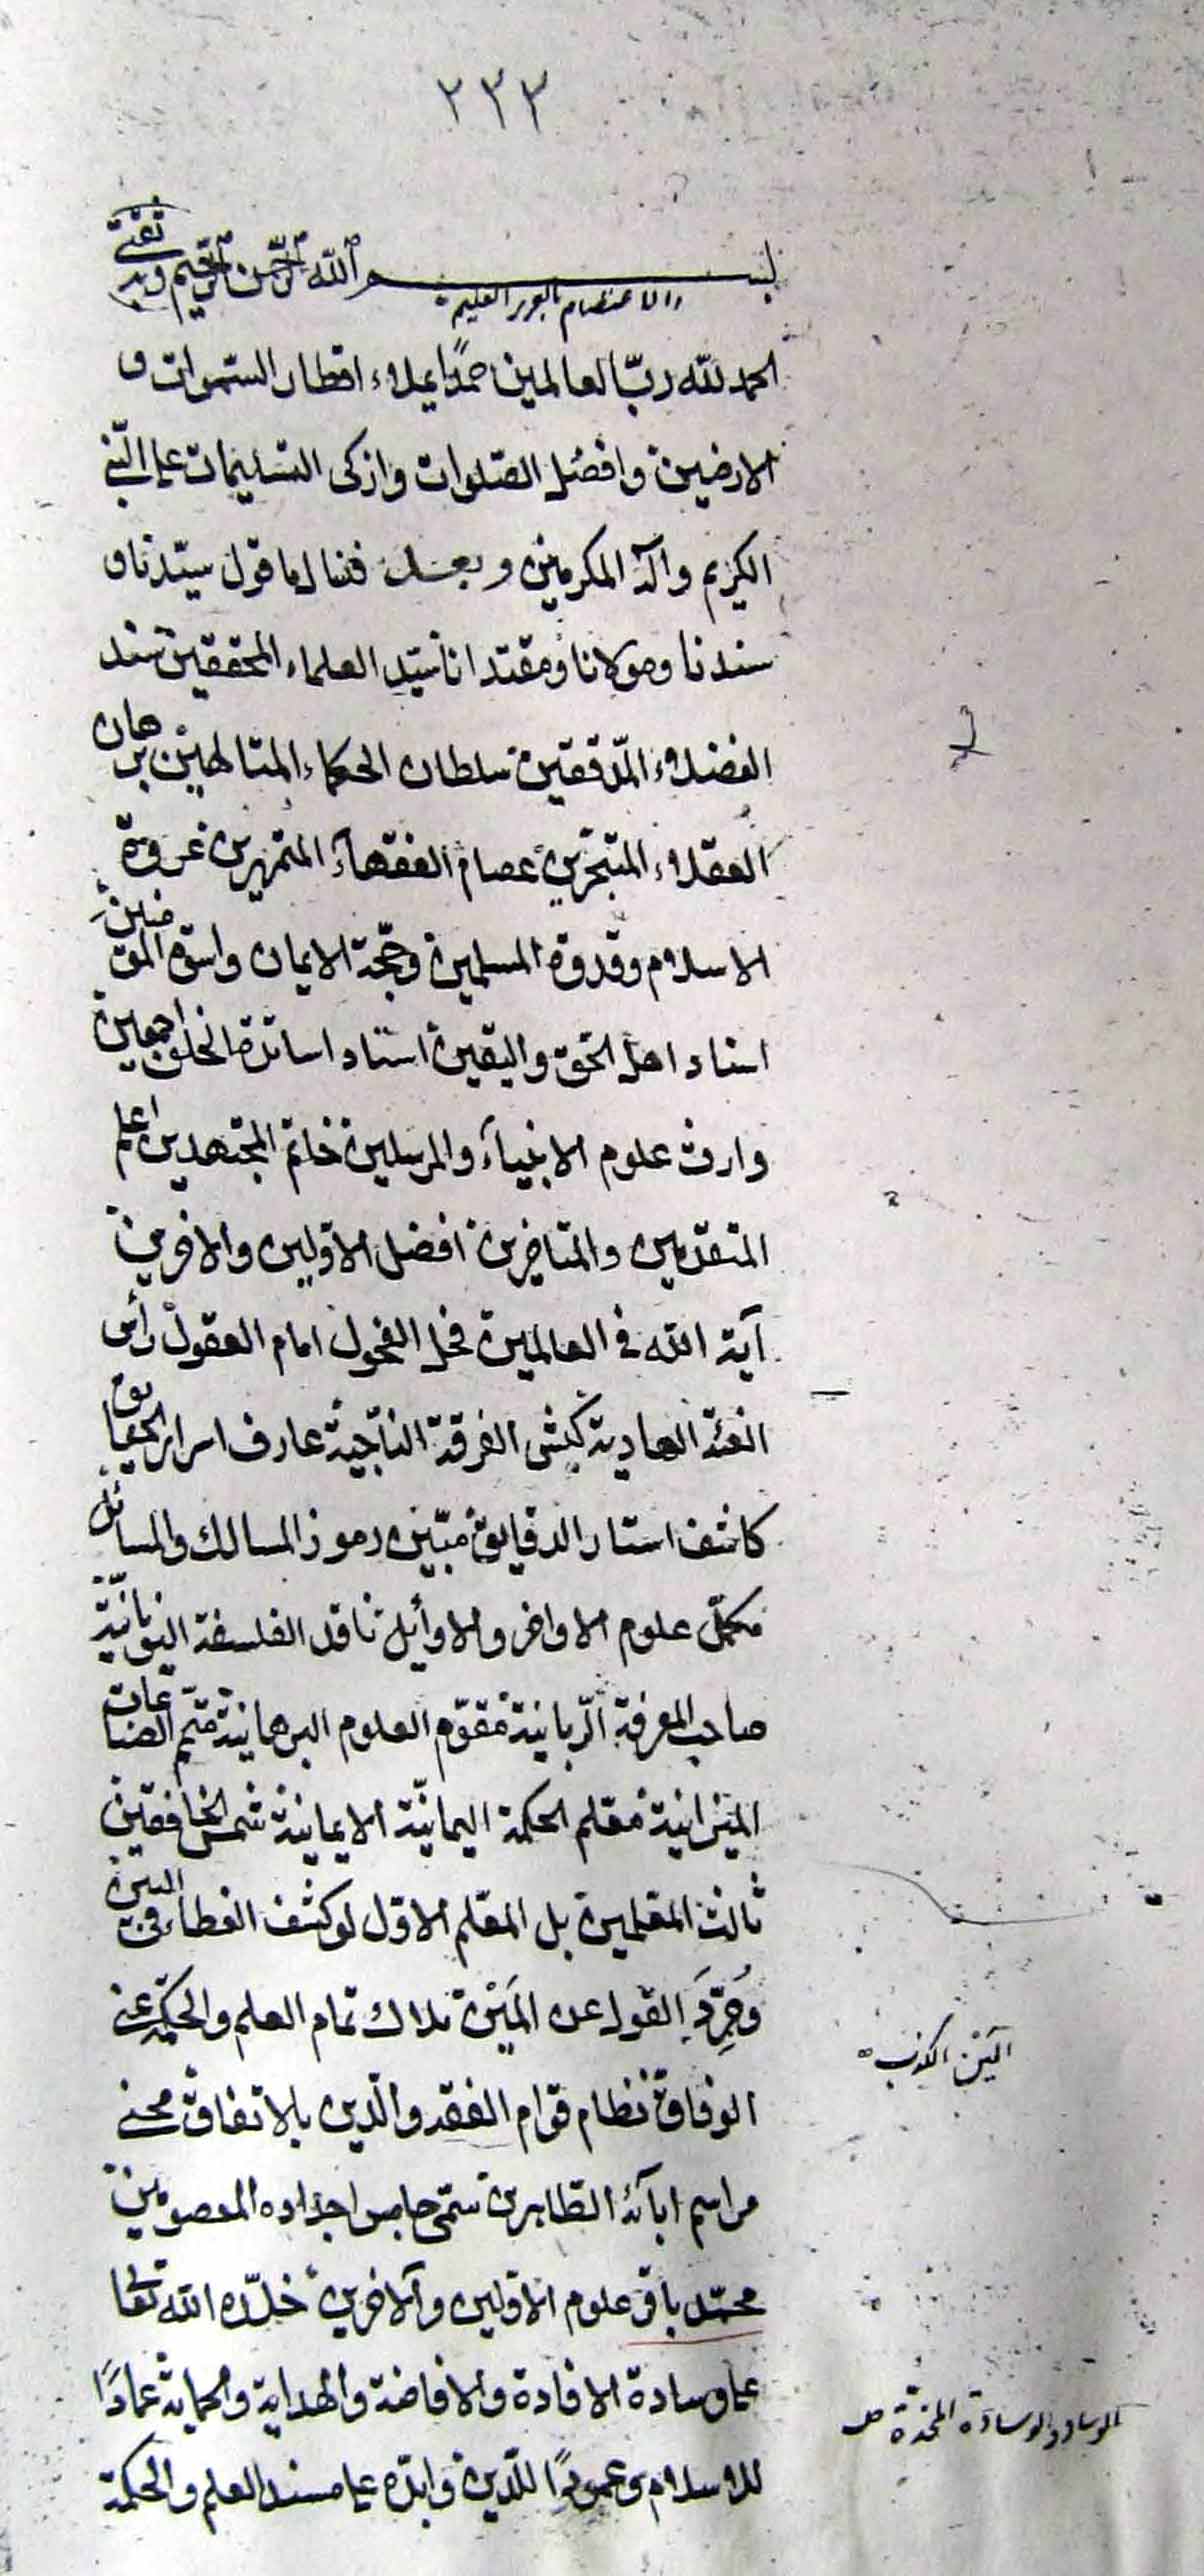 ٢٣٣
بسم الله الرحمن الرحيم وبه ثقتي
والاعتصام بالعزيز العليم
الحمد لله ربّ العالمين حمدًا يملاء اقطار السّموات و
الارضين وافضل الصّلوات وازكى التسليمات على النّبي
الكريم وآله المكرمين وبعد فى قول سيّدنا و
سندنا ومولانا ومقتدانا سيّد العلماء المحققين سند
الفضلاء المدّققين سلطان الحكماء المتالهين برهان
العقلاء المتبحّرين عصام الفقهآء المتمهرين عروة
الاسلام وقدوة المسلمين وحجّة الايمان واسوة الموقنين
استاد اهل الحق واليقين استاد اساتذة الخلق اجمعين
وارث علوم الانبيآء والمرسلين خاتم المجتهدين اعلم
المتقدمين والمتاخرين افضل الاوّلين والاخرين
آية الله فى العالمين فحل الفحول امام العقول رأس
الفئة الهادية كبش الفرقة النّاجية عارف اسرار الحقايق
كاشف استار الدقايق مبيّن رموز المسالك والمسائل
مكمّل علوم الاواخر والاوائل ناقد الفلسفة اليونانيّة
صاحب المعرفة الرّبانية مقوّم العلوم البرهانية متمّم الصناعات
الميزانية معلم الحكمة اليمانيّة الايمانية شمس الخافقين
ثالث المعلمين بل المعلم الاوّل لو كشف الغطاء فى البين
وجُرِّدَ القول عن المَيْن ملاك تمام العلم والحكمة على
الوفاق نظام قوام الفقه والدّين بالاتفاق محيى
مراسم ابآئه الطّاهرين سمّى خامس اجداده المعصومين
محمّد باقر علوم الاوّلين والآخرين خلّده الله تعالى
على وسادة الافادة والافاضة والهداية والحماية عمادًا
للاسلام وعمودًا للدّين وابّده على مسند العلم والحكمة
المَيْن الكذب
الوساد والوسادة المخدّة ص